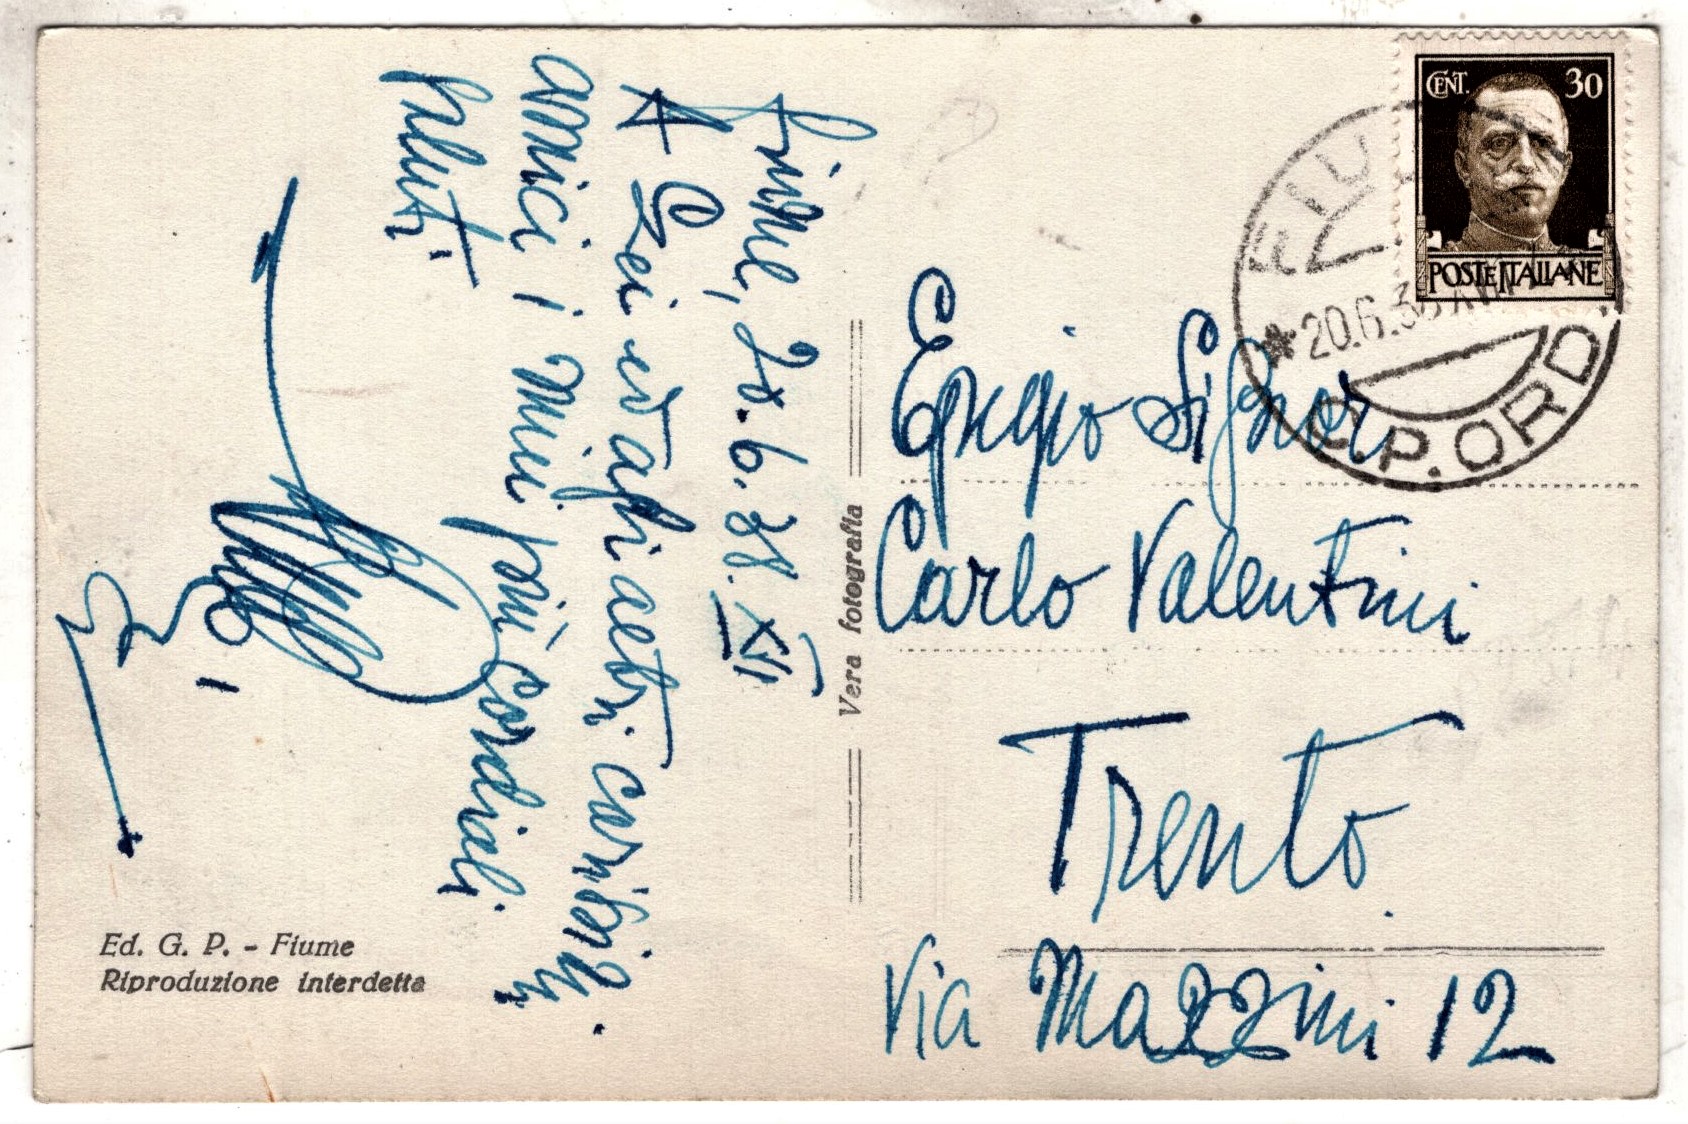 Fiume, 20.6.38. XVI
A Lei ed agli altri carissimi
amici i miei più cordiali
saluti
Vera fotografia
Ed. G. P. - Fiume
Riproduzione interdetta
CENT. 30
POSTE ITALIANE
FIU
*20.6.38 XVI
C.P. ORD.
Egregio Signor
Carlo Valentini
Trento
Via Mazzini 12